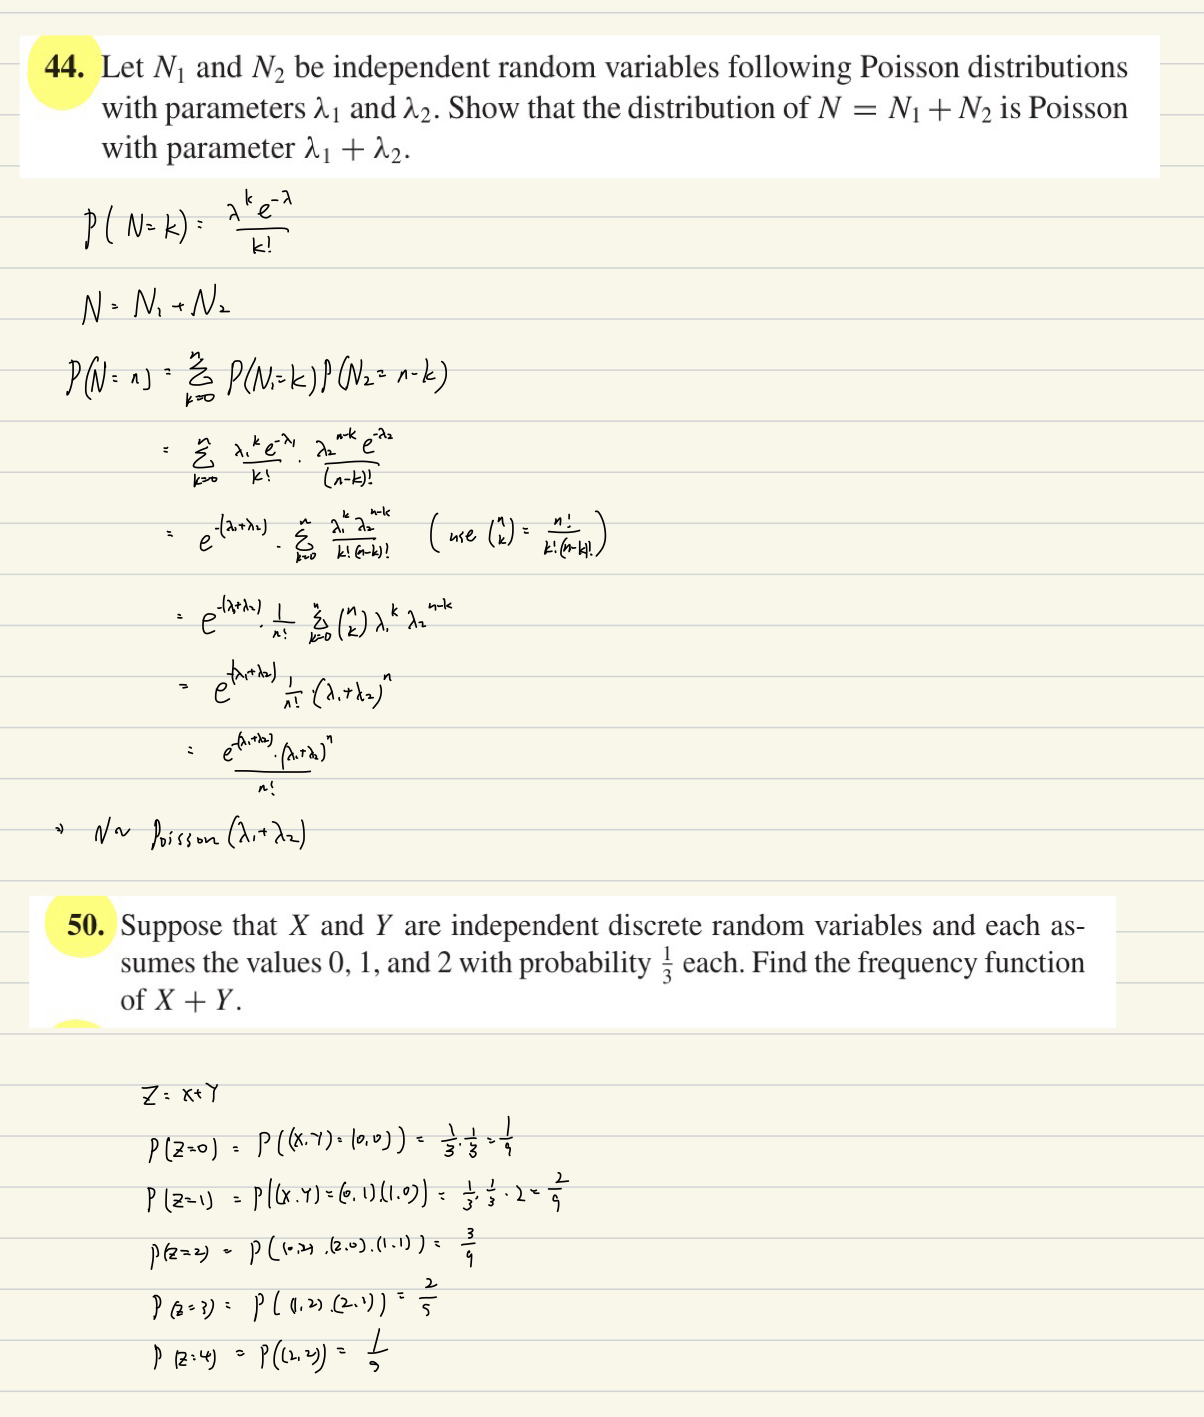 44. Let N₁ and N₂ be independent random variables following Poisson distributions
with parameters λ₁ and λ₂. Show that the distribution of N = N₁ + N₂ is Poisson
with parameter λ₁ + λ₂.
P(N=k) = λ^k e^-λ / k!
N = N₁ + N₂
P(N=n) = Σ_{k=0}^{n} P(N₁=k) P(N₂=n-k)
= Σ_{k=0}^{n} λ₁^k e^-λ₁ / k! · λ₂^{n-k} e^-λ₂ / (n-k)!
= e^-(λ₁+λ₂) · Σ_{k=0}^{n} λ₁^k λ₂^{n-k} / k!(n-k)! (use (n k) = n! / k!(n-k)!)
= e^-(λ₁+λ₂) · 1/n! Σ_{k=0}^{n} (n k) λ₁^k λ₂^{n-k}
= e^-(λ₁+λ₂) 1/n! · (λ₁+λ₂)^n
= e^-(λ₁+λ₂) · (λ₁+λ₂)^n / n!
⇒ N ~ Poisson (λ₁+λ₂)
50. Suppose that X and Y are independent discrete random variables and each as-
sumes the values 0, 1, and 2 with probability 1/3 each. Find the frequency function
of X + Y.
Z = X+Y
P(Z=0) = P((X.Y) = (0,0)) = 1/3 · 1/3 = 1/9
P(Z=1) = P((X.Y) = (0,1)(1.0)) = 1/3 · 1/3 · 2 = 2/9
P(Z=2) = P((0,2).(2.0).(1.1)) = 3/9
P(Z=3) = P((1.2).(2.1)) = 2/5
P(Z=4) = P((2,2)) = 1/9